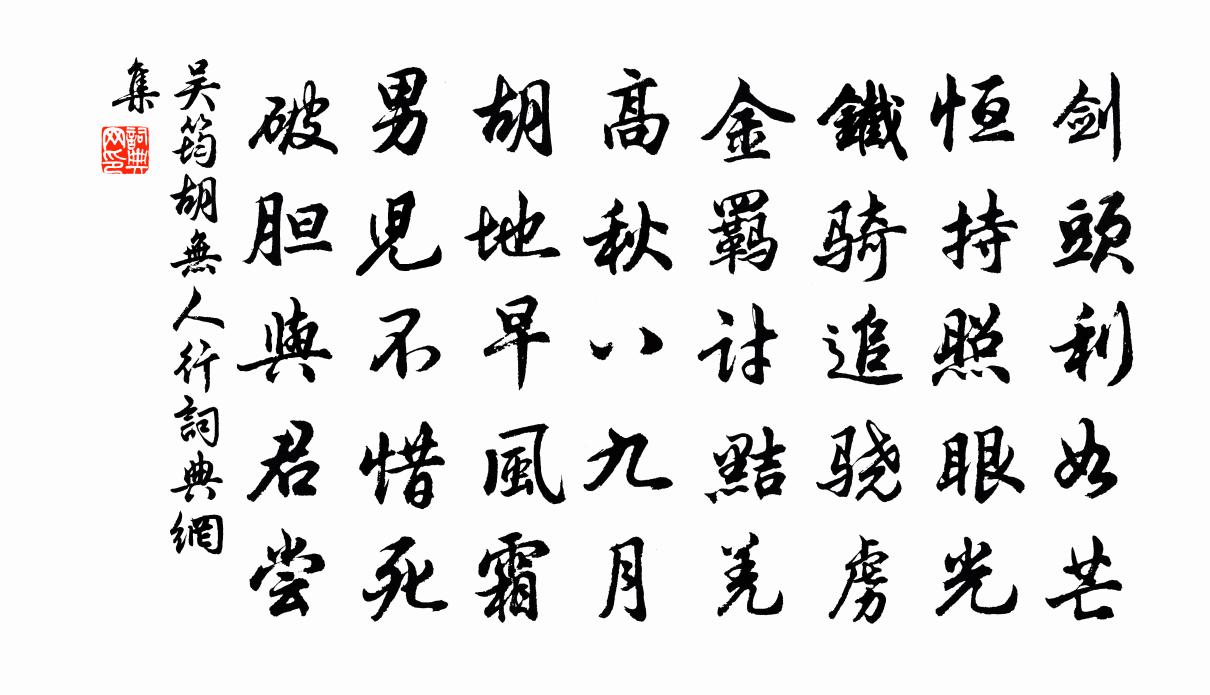 剑頭利如芒
恒持照眼光
鐵骑追骁虏
金羈討黠羌
高秋八九月
胡地早風霜
男児不惜死
破胆與君尝
吴筠胡無人行詞典網
集
詞典
网印